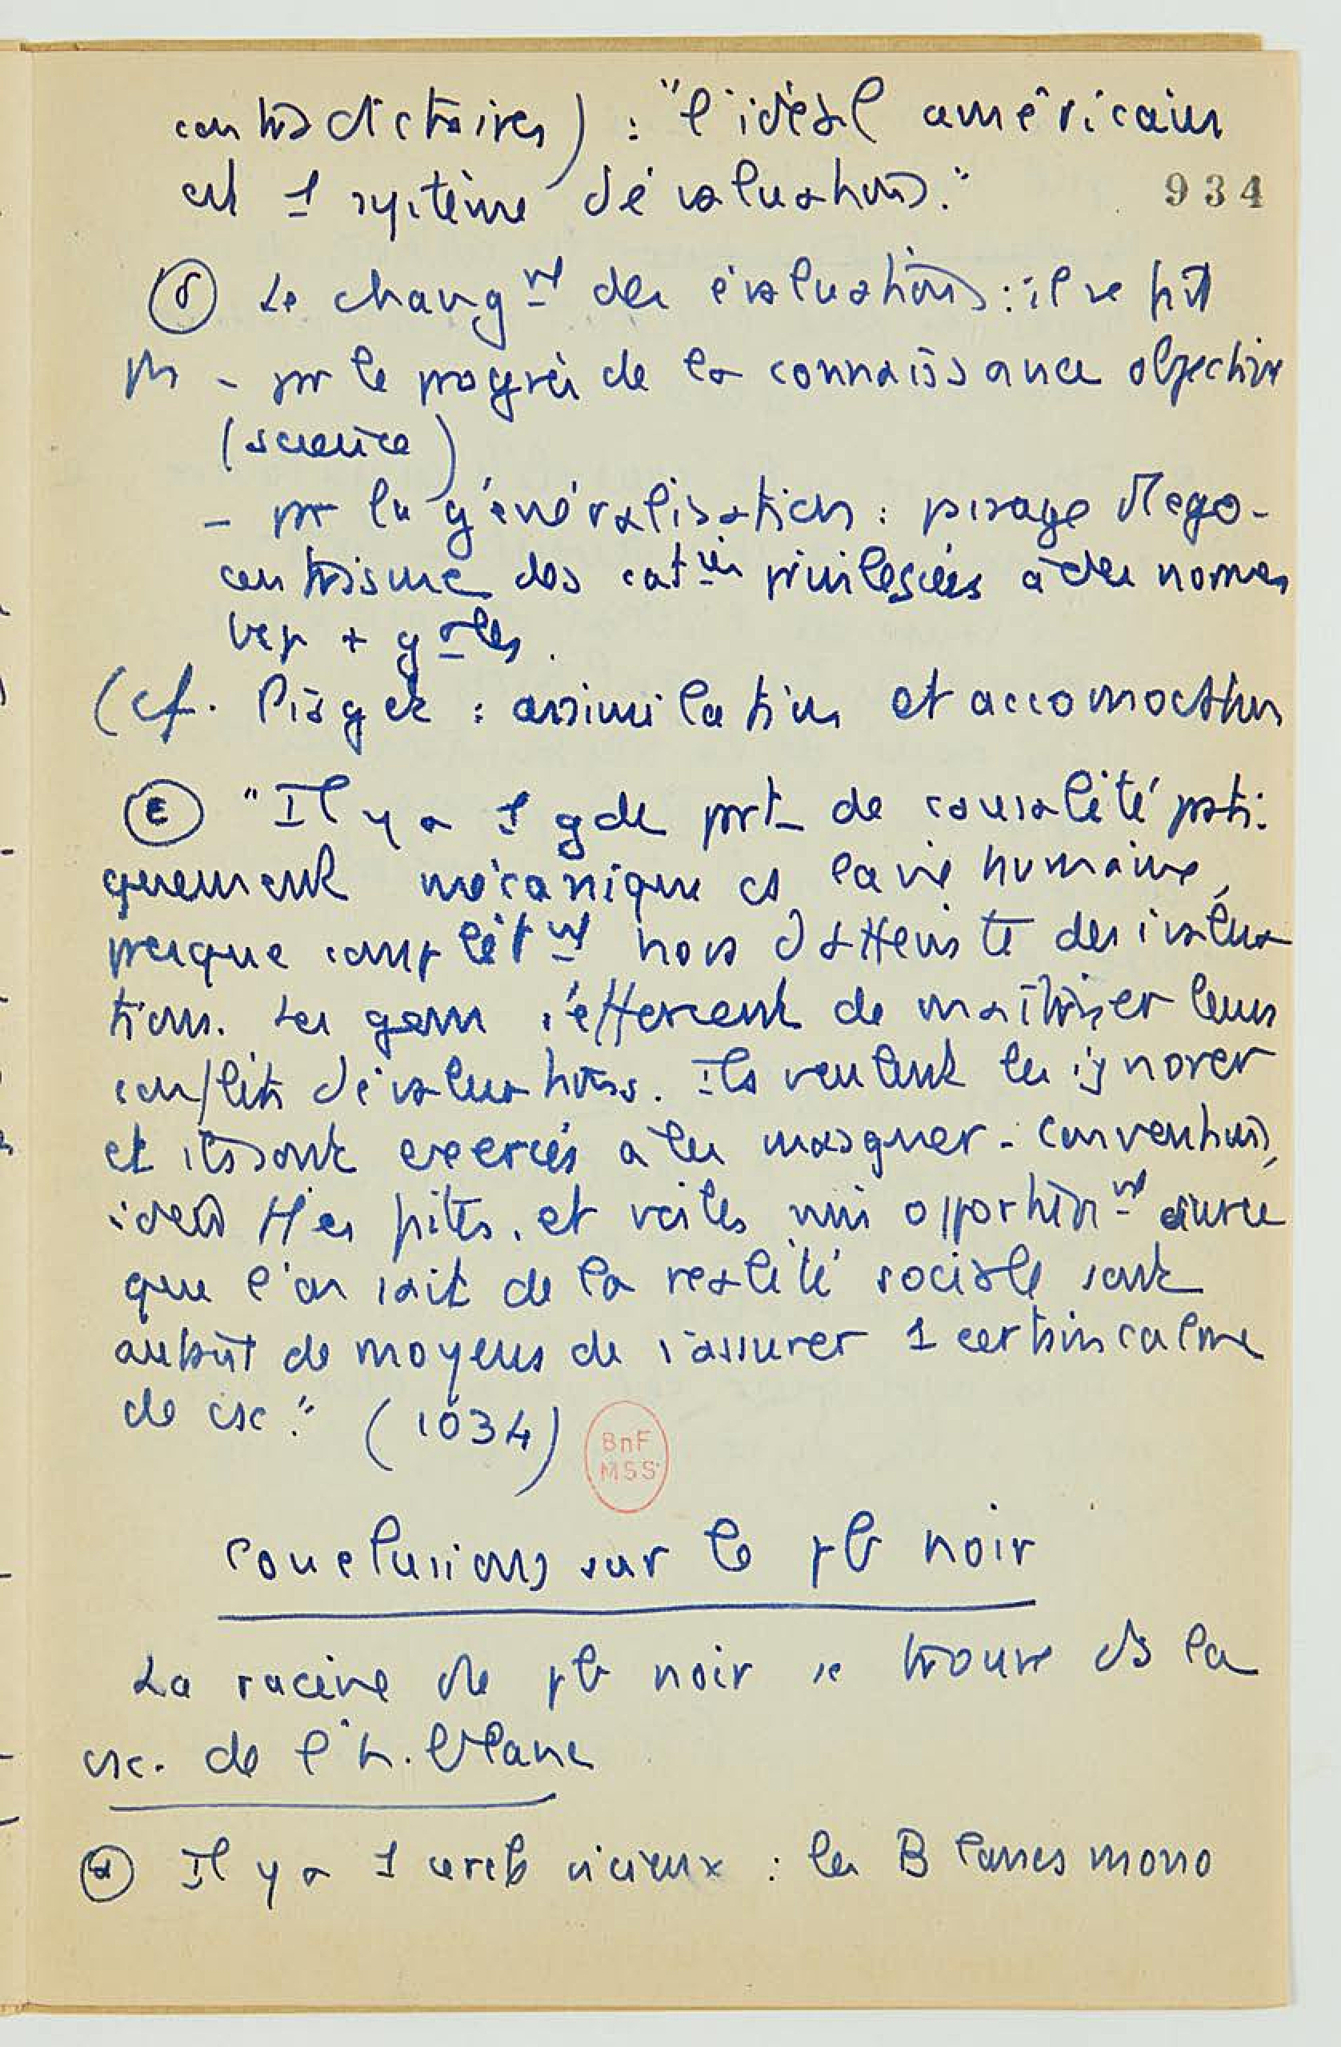 contradictoires) : "l'idéal américain
est 1 système d'évaluations."
934
δ Le chang^nt des évaluations : il se fait
- par le progrès de la connaissance objective
(science)
- par la généralisation : passage d'ego-
centrisme des privilégiées à des normes
+ g^ales.
(cf. Piaget : assimilation et accomodation
ε "Il y a 1 gde part de causalité prati-
quement mécanique ds la vie humaine,
presque complèt^nt hors d'atteinte des évalua
tions. Les gens s'efforcent de maîtriser leurs
conflits d'évaluations. Ils veulent les ignorer
et ils sont exercés à les masquer. Conventions,
idées et voiles mis opportun^nt sur ce
que l'on sait de la réalité sociale sont
autant de moyens de s'assurer 1 certain calme
de csc." (1034)
BnF
MSS
Conclusions sur le pb noir
La racine du pb noir se trouve ds la
csc. de l'h. blanc
α Il y a 1 cercle vicieux : les Blancs mono